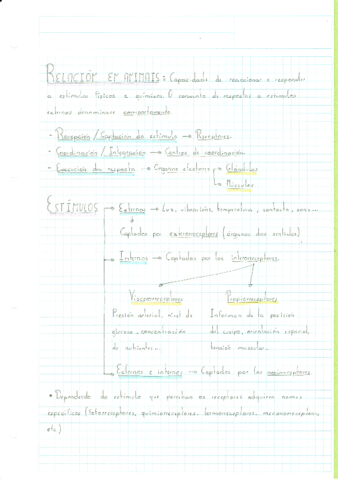 RELACIÓN EN ANIMAIS: Capacidade de reaccionar e responder
a estímulos físicos e químicos. O conxunto de respostas a estímulos
externos denomínase comportamento.
- Recepción / Captación do estímulo → Receptores.
- Coordinación / Integración → Centros de coordinación.
- Execución da resposta → Órganos efectores → Glándulas
→ Músculos
ESTÍMULOS → Externos → Luz, vibracións, temperatura, contacto, sons...
Captados por exterorreceptores (órganos dos sentidos)
→ Internos → Captados por los interorreceptores.
Visceroreceptores Propiorreceptores
Presión arterial, nivel de Informan da posición
glucosa, concentración do corpo, orientación espacial,
de nutrientes... tensión muscular...
→ Externos e internos → Captados por los
• Dependendo do estímulo que perciban os receptores adquiren nomes
específicos (fotorreceptores, quimiorreceptores, termorreceptores, mecanorreceptores
etc)